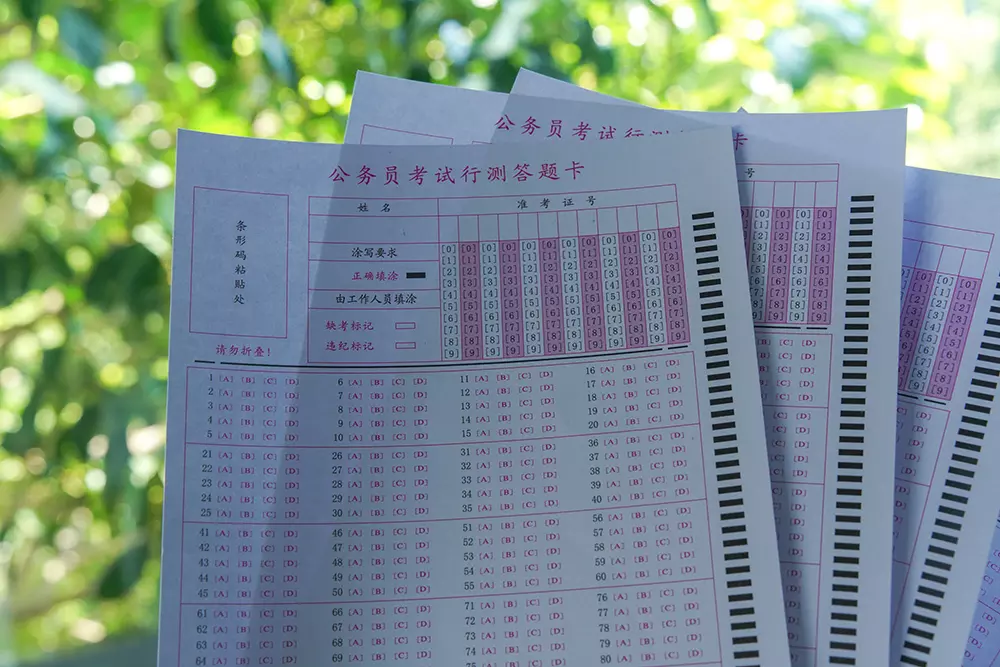 公务员考试行测答题卡
姓名 准考证号
条形码粘贴处
涂写要求
正确填涂
由工作人员填涂
缺考标记
违纪标记
请勿折叠!
[0] [0] [0] [0] [0] [0] [0] [0] [0] [0] [0] [0]
[1] [1] [1] [1] [1] [1] [1] [1] [1] [1] [1] [1]
[2] [2] [2] [2] [2] [2] [2] [2] [2] [2] [2] [2]
[3] [3] [3] [3] [3] [3] [3] [3] [3] [3] [3] [3]
[4] [4] [4] [4] [4] [4] [4] [4] [4] [4] [4] [4]
[5] [5] [5] [5] [5] [5] [5] [5] [5] [5] [5] [5]
[6] [6] [6] [6] [6] [6] [6] [6] [6] [6] [6] [6]
[7] [7] [7] [7] [7] [7] [7] [7] [7] [7] [7] [7]
[8] [8] [8] [8] [8] [8] [8] [8] [8] [8] [8] [8]
[9] [9] [9] [9] [9] [9] [9] [9] [9] [9] [9] [9]
1 [A] [B] [C] [D] 6 [A] [B] [C] [D] 11 [A] [B] [C] [D] 16 [A] [B] [C] [D]
2 [A] [B] [C] [D] 7 [A] [B] [C] [D] 12 [A] [B] [C] [D] 17 [A] [B] [C] [D]
3 [A] [B] [C] [D] 8 [A] [B] [C] [D] 13 [A] [B] [C] [D] 18 [A] [B] [C] [D]
4 [A] [B] [C] [D] 9 [A] [B] [C] [D] 14 [A] [B] [C] [D] 19 [A] [B] [C] [D]
5 [A] [B] [C] [D] 10 [A] [B] [C] [D] 15 [A] [B] [C] [D] 20 [A] [B] [C] [D]
21 [A] [B] [C] [D] 26 [A] [B] [C] [D] 31 [A] [B] [C] [D] 36 [A] [B] [C] [D]
22 [A] [B] [C] [D] 27 [A] [B] [C] [D] 32 [A] [B] [C] [D] 37 [A] [B] [C] [D]
23 [A] [B] [C] [D] 28 [A] [B] [C] [D] 33 [A] [B] [C] [D] 38 [A] [B] [C] [D]
24 [A] [B] [C] [D] 29 [A] [B] [C] [D] 34 [A] [B] [C] [D] 39 [A] [B] [C] [D]
25 [A] [B] [C] [D] 30 [A] [B] [C] [D] 35 [A] [B] [C] [D] 40 [A] [B] [C] [D]
41 [A] [B] [C] [D] 46 [A] [B] [C] [D] 51 [A] [B] [C] [D] 56 [A] [B] [C] [D]
42 [A] [B] [C] [D] 47 [A] [B] [C] [D] 52 [A] [B] [C] [D] 57 [A] [B] [C] [D]
43 [A] [B] [C] [D] 48 [A] [B] [C] [D] 53 [A] [B] [C] [D] 58 [A] [B] [C] [D]
44 [A] [B] [C] [D] 49 [A] [B] [C] [D] 54 [A] [B] [C] [D] 59 [A] [B] [C] [D]
45 [A] [B] [C] [D] 50 [A] [B] [C] [D] 55 [A] [B] [C] [D] 60 [A] [B] [C] [D]
61 [A] [B] [C] [D] 66 [A] [B] [C] [D] 71 [A] [B] [C] [D] 76 [A] [B] [C] [D]
62 [A] [B] [C] [D] 67 [A] [B] [C] [D] 72 [A] [B] [C] [D] 77 [A] [B] [C] [D]
63 [A] [B] [C] [D] 68 [A] [B] [C] [D] 73 [A] [B] [C] [D] 78 [A] [B] [C] [D]
64 [A] [B] [C] [D] 69 [A] [B] [C] [D] 74 [A] [B] [C] [D] 79 [A] [B] [C] [D]
75 [A] [B] [C] [D] 80 [A] [B] [C] [D]
公务员考试行测
号